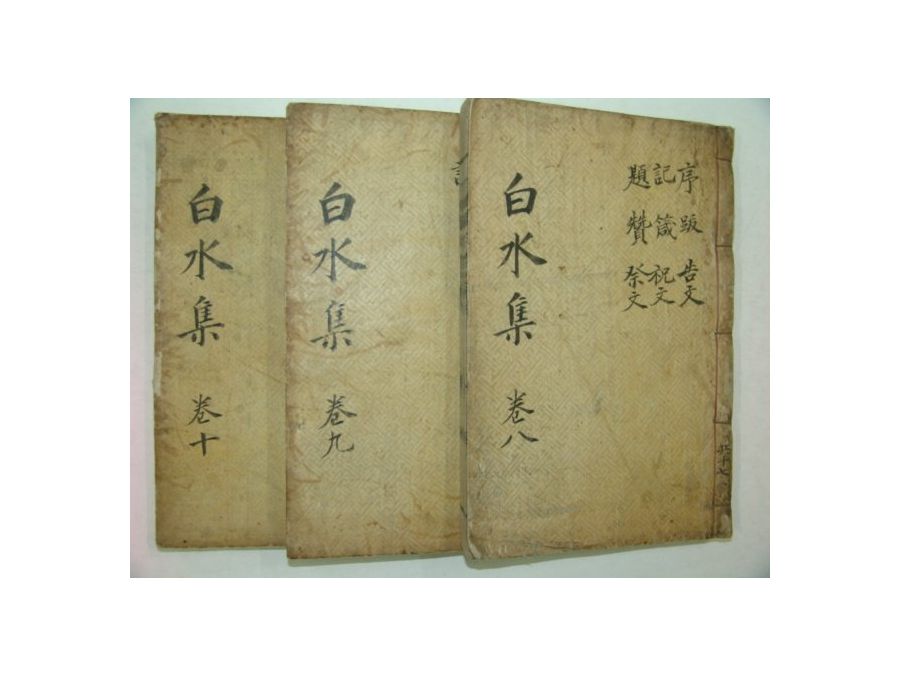 序 跋 告文
記 箴 祝文
題 贊 祭文
白水集 卷八
白水集 卷九
白水集 卷十